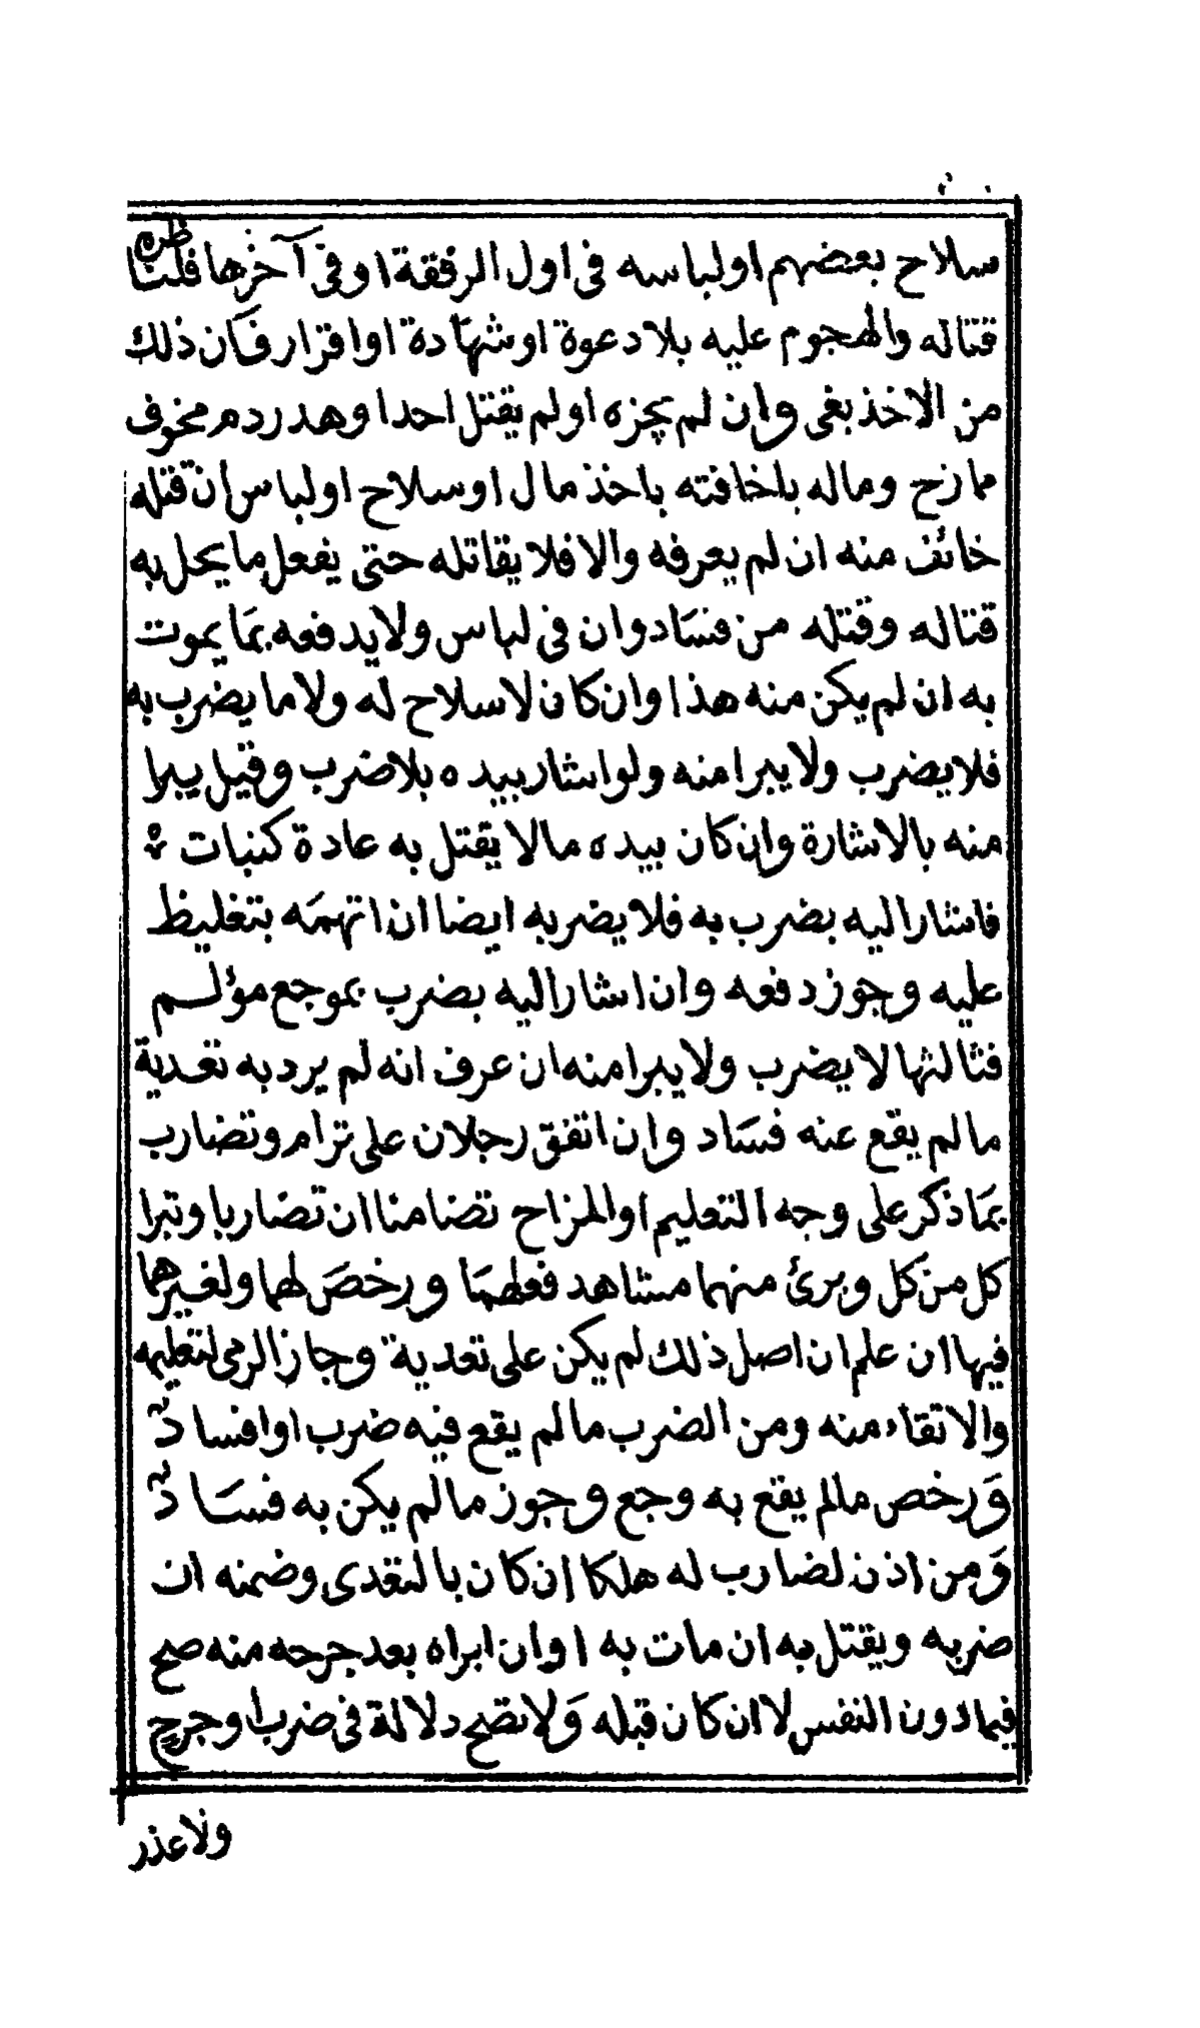 سلاح بعضهم اولباسه فى اول الرفقة اوفى آخرها فلناظره
قتاله والهجوم عليه بلا دعوة اوشهادة اواقرار فكان ذلك
من الاخذ بغى وان لم يجزه اولم يقتل احدا وهدر دم مخوف
مازح وماله باخافته باخذ مال اوسلاح اولباس ان قتله
خائف منه ان لم يعرفه والا فلا يقاتله حتى يفعل ما يحل به
قتاله وقتله من فساد وان فى لباس ولا يدفعه بما يموت
به ان لم يكن منه هذا وان كان لا سلاح له ولا ما يضرب به
فلا يضرب ولا يبرا منه ولو اشار بيده بلا ضرب وقيل يبرا
منه بالاشارة وان كان بيده ما لا يقتل به عادة كنبات
فاشار اليه بضرب به فلا يضربه ايضا ان اتهمه بتغليظ
عليه وجوز دفعه وان اشار اليه بضرب بموجع مؤلم
فثالثها لا يضرب ولا يبرا منه ان عرف انه لم يرد به تعدية
ما لم يقع عنه فساد وان اتفق رجلان على ترام وتضارب
بما ذكر على وجه التعليم اوالمزاح تضامنا ان تضاربا وتبرا
كل من كل وبرئ منهما مشاهد فعلهما ورخص لهما ولغيرهما
فيها ان علم ان اصل ذلك لم يكن على تعدية وجاز الرمى لتعليمه
والاتقاء منه ومن الضرب ما لم يقع فيه ضرب اوافساد
ورخص مالم يقع به وجع وجوز ما لم يكن به فساد
ومن اذن لضارب له هلكا ان كان بالتعدى وضمنه ان
ضربه ويقتل به ان مات به اوان ابراه بعد جرحه منه صح
فيما دون النفس لا ان كان قبله ولا تصح دلالة فى ضرب اوجرح
ولا عذر